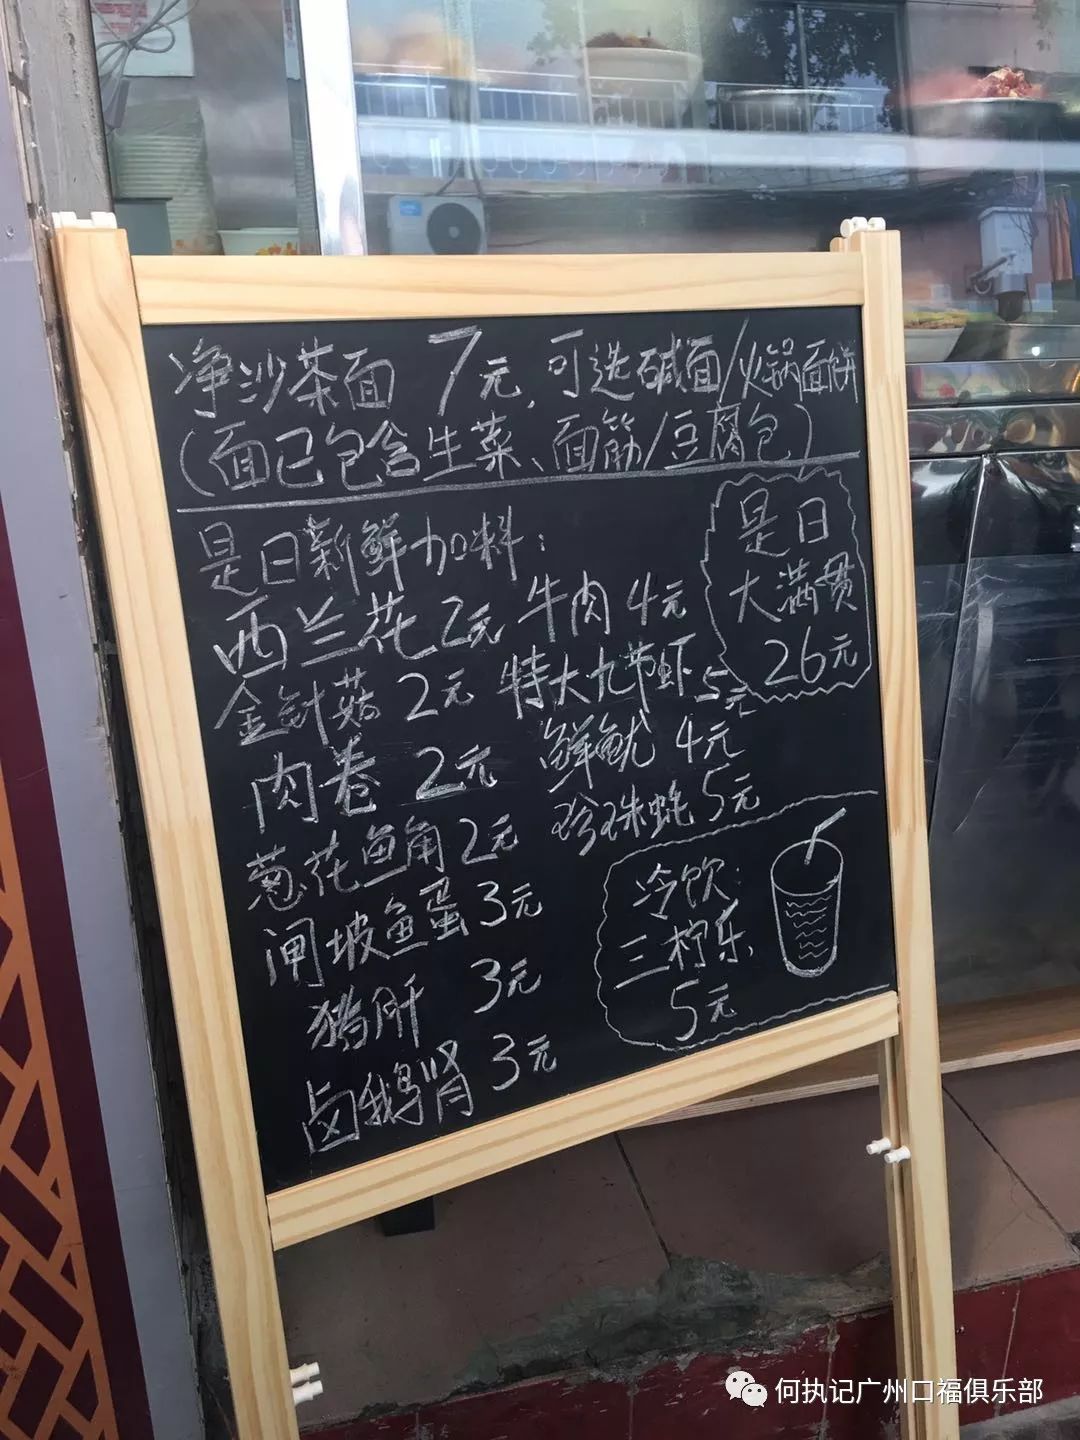 净沙茶面 7元,可选碱面/火锅面饼
(面已包含生菜、面筋/豆腐包)
是日新鲜加料:
西兰花 2元
金针菇 2元
肉卷 2元
葱花鱼角 2元
闸坡鱼蛋 3元
猪肝 3元
卤鹅肾 3元
牛肉 4元
特大九节虾 5元
鲜鱿 4元
珍珠蚝 5元
是日
大满贯
26元
冷饮:
三柠乐
5元
何执记广州口福俱乐部